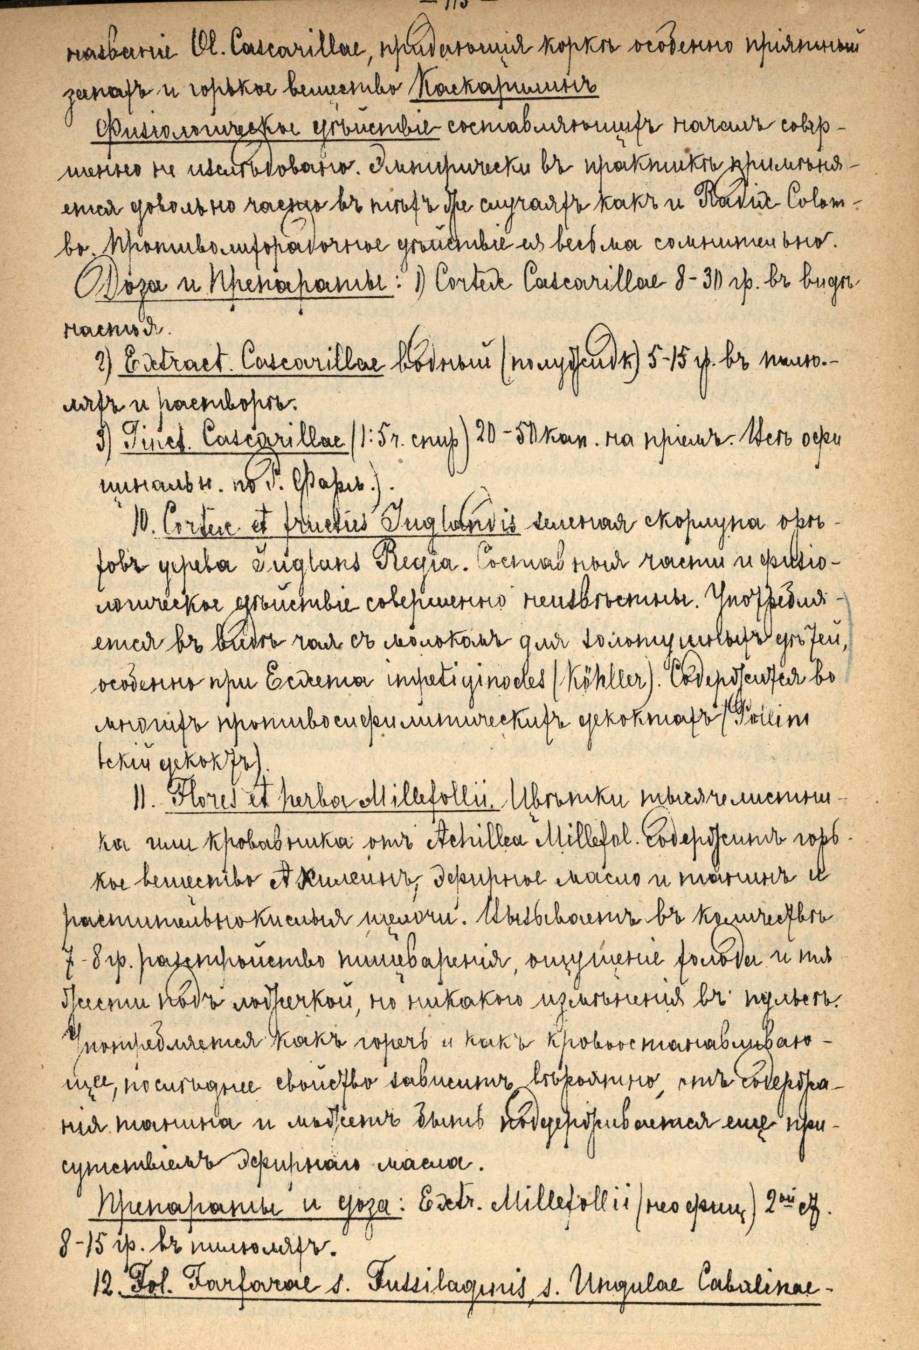 — 113 —
названіе Ol. Cascarillae, придающія коркѣ особенно пріятный
запахъ и горькое вещество Каскарилинъ
Физіологическое дѣйствіе составляющихъ началъ совер-
шенно не изслѣдовано. Эмпирически въ практикѣ примѣня-
ется довольно часто въ тѣхъ же случаяхъ какъ и Radix Colom-
bo. Противолихорадочное дѣйствіе ея весьма сомнительно.
Доза и Препараты: 1) Cortex Cascarillae 8-30 гр. въ видѣ
настоя.
2) Extract. Cascarillae водный (полужидк) 5-15 гр. въ пилю-
ляхъ и растворѣ.
3) Tinct. Cascarillae (1:5 ч. спир) 20-50 кап. на пріемъ. Всѣ офи
цинальн. по Р. Фарм.).
10. Cortex et fructus Juglandis зеленая скорлупа орѣ-
ховъ древа Juglans Regia. Составныя части и физіо-
логическое дѣйствіе совершенно неизвѣстны. Употребля-
ется въ видѣ чая съ молокомъ для золотушныхъ дѣтей,
особенно при Eczema impetiginodes (Köhller). Содержится во
многихъ противосифилитическихъ декоктахъ (Поллин
скій декоктъ).
11. Flores et herba Millefollii. Цвѣтки тысячелистни-
ка или кровавника отъ Achillea Millefol. Содержитъ горь-
кое вещество Ахилеинъ, эфирное масло и танинъ и
растительнокислыя щелочи. Вызываетъ въ количествѣ
7-8 гр. разстройство пищеваренія, ощущеніе холода и тя
жести подъ ложечкой, но никакого измѣненія въ пульсѣ.
Употребляется какъ горечь и какъ кровоостанавливаю-
щее, послѣднее свойство зависитъ, вѣроятно, отъ содержа-
нія танина и можетъ быть поддерживается еще при-
сутствіемъ эфирнаго масла.
Препараты и доза: Extr. Millefollii (неофиц) 2ой ст.
8-15 гр. въ пилюляхъ.
12. Fol. Farfarae s. Tussilaginis, s. Ungulae Cabalinae-